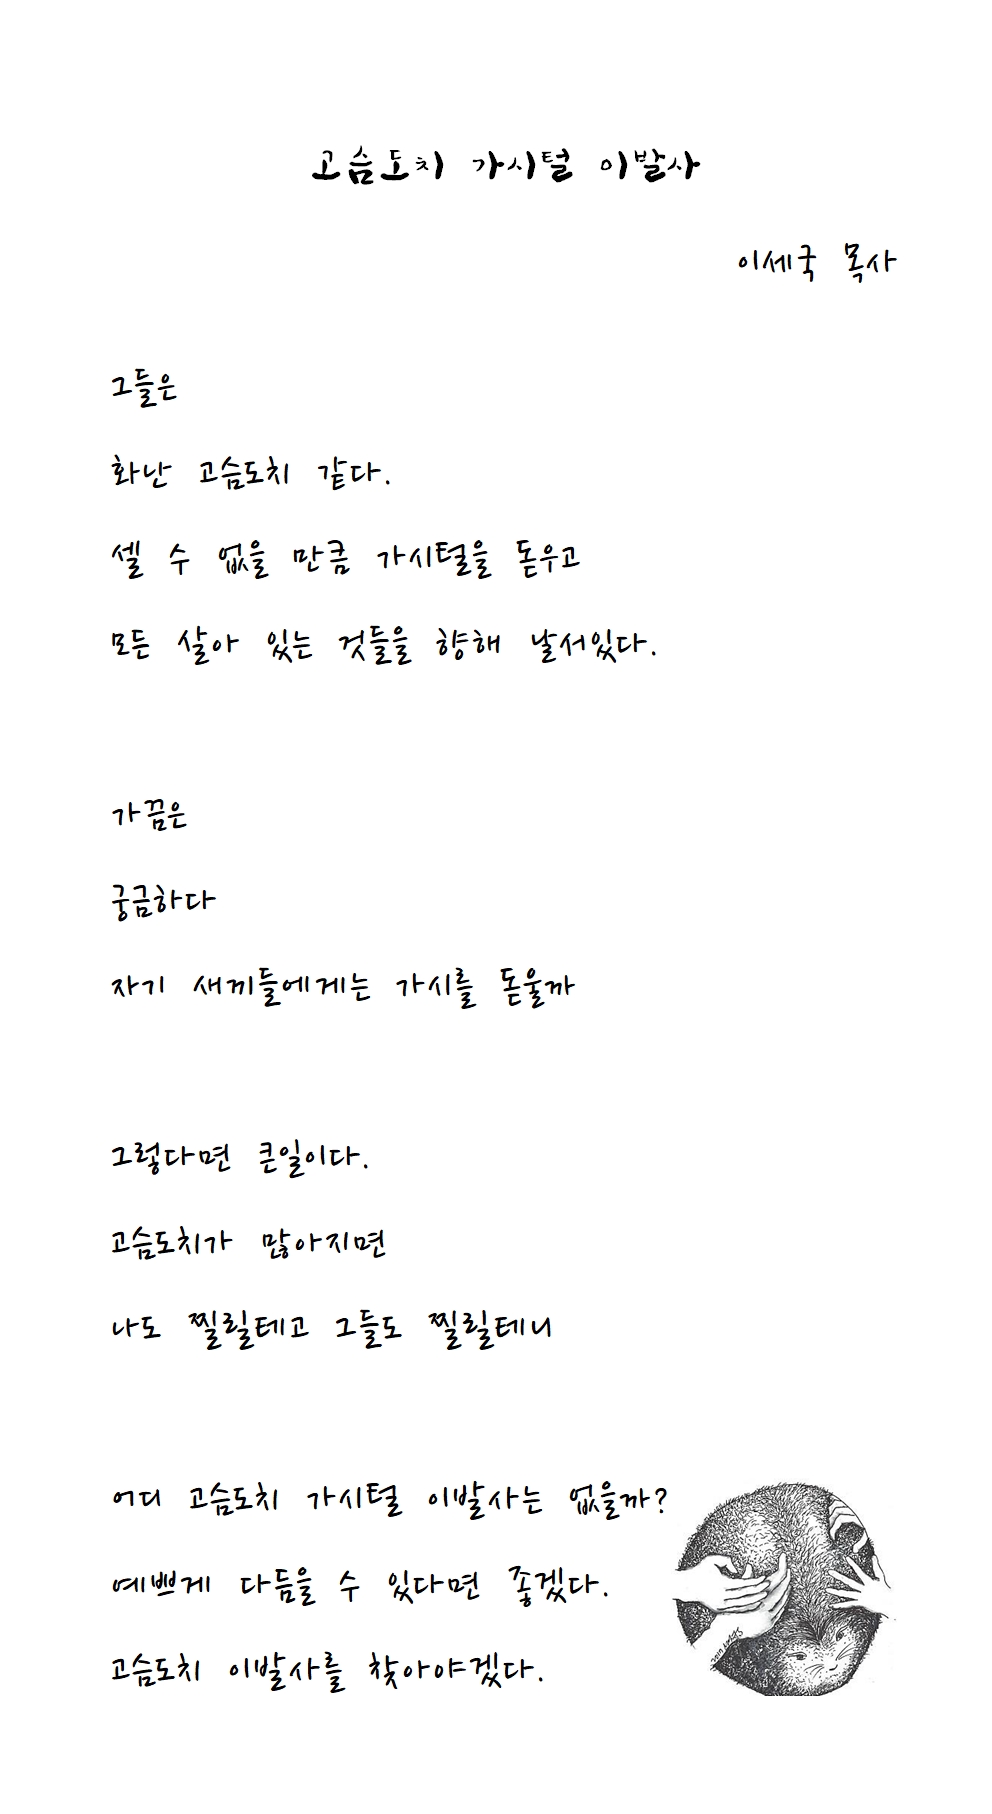 고슴도치 가시털 이발사
이세국 목사
그들은
화난 고슴도치 같다.
셀 수 없을 만큼 가시털을 돋우고
모든 살아 있는 것들을 향해 날서있다.
가끔은
궁금하다
자기 새끼들에게는 가시를 돋울까
그렇다면 큰일이다.
고슴도치가 많아지면
나도 찔릴테고 그들도 찔릴테니
어디 고슴도치 가시털 이발사는 없을까?
예쁘게 다듬을 수 있다면 좋겠다.
고슴도치 이발사를 찾아야겠다.